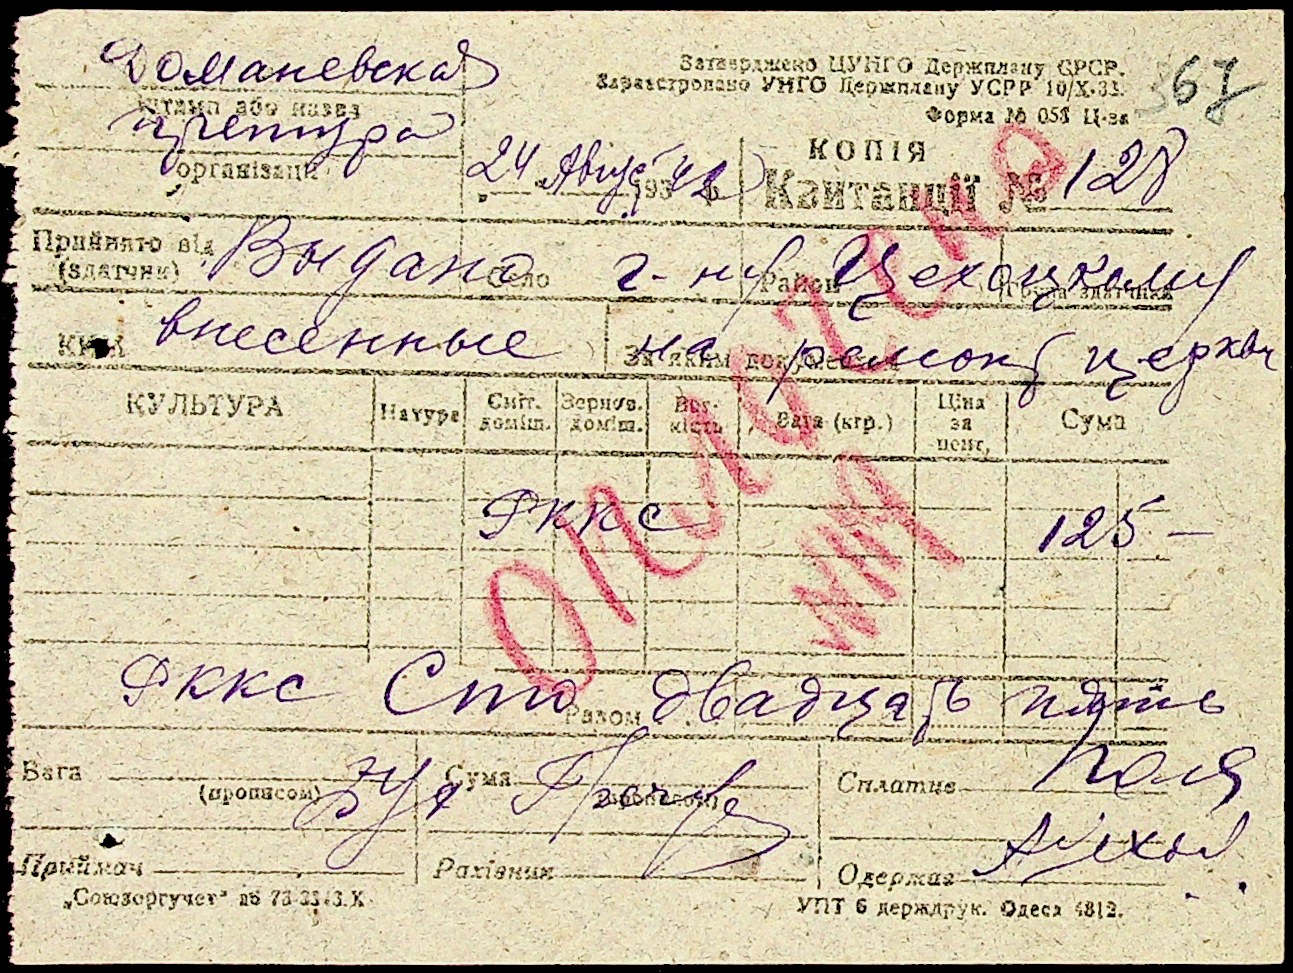 Доманевская
Затверджено ЦУНГО Держплану СРСР.
Зареєстровано УНГО Держплану УСРР 10/X-33.
367
штамп або назва
Форма № 058 Ц-за
претура
КОПІЯ
організації
24 Август 1942 р
Квитанції № 128
Прийнято від Выдано село г-ну Район Цехоцкому
(здатчик) Група здатчика
внесенные на ремонт церкви
За яким документом
КУЛЬТУРА Натура Сміт. доміш. Зернов. доміш. Вог-кість Вага (кгр.) Ціна за цент. Сума
ОПЛАЧЕНО
РККС 125 —
РККС Сто двадцать пять
Разом
Вага (прописом) Сума (прописом) Сплатив
Приймач Рахівник Одержав
„Союзоргучет" УПТ 6 держдрук. Одеса 4812.